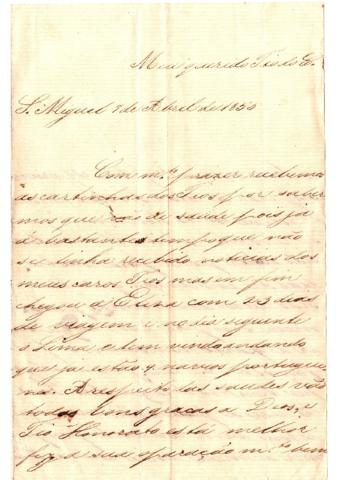 Meu querido Tio do C.
S. Miguel 8 de Abril de 1850
Com m.to prazer recebemos
as cartinhas dos Tios por saber
mos que são de saude pois ja
á bastante tempo que não
se tinha recebido noticias dos
meus caros Tios mas em fim
chegou a Elisa com 23 dias
de viagem e no dia siguente
o Lima e tem vindo andando
que ja estão 4 navios portugue
na. A respeito das saudes vão
todos bons graças a Deos, o
Tio Honorato está melhor
fez a sua operação m.to bem